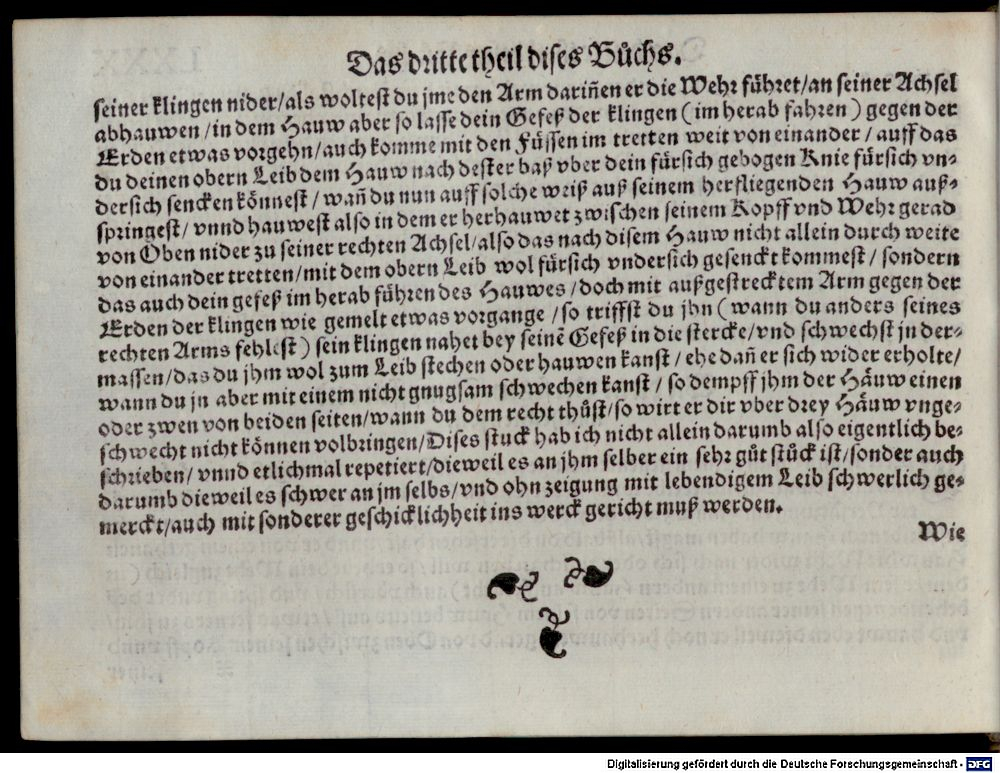 Das dritte theil dises Bůchs.
seiner klingen nider/als woltest du jme den Arm dariñen er die Wehr führet/an seiner Achsel
abhauwen/in dem Hauw aber so lasse dein Gefeß der klingen (im herab fahren) gegen der
Erden etwas vorgehn/auch komme mit den Füssen im tretten weit von einander/auff das
du deinen obern Leib dem Hauw nach dester baß vber dein fürsich gebogen Knie fürsich vn-
dersich sencken könnest/wañ du nun auff solche weiß auß seinem herfliegenden Hauw auß-
springest/vnnd hauwest also in dem er herhauwet zwischen seinem Kopff vnd Wehr gerad
von Oben nider zu seiner rechten Achsel/also das nach disem Hauw nicht allein durch weite
von einander tretten/mit dem obern Leib wol fürsich vndersich gesenckt kommest/sondern
das auch dein gefeß im herab führen des Hauwes/doch mit außgestrecktem Arm gegen der
Erden der klingen wie gemelt etwas vorgange/so triffst du jhn (wann du anders seines
rechten Arms fehlest) sein klingen nahet bey seinẽ Gefeß in die stercke/vnd schwechst jn der-
massen/das du jhm wol zum Leib stechen oder hauwen kanst/ehe dañ er sich wider erholte/
wann du jn aber mit einem nicht gnugsam schwechen kanst/so dempff jhm der Häuw einen
oder zwen von beiden seiten/wann du dem recht thůst/so wirt er dir vber drey Häuw vnge-
schwecht nicht können volbringen/Dises stuck hab ich nicht allein darumb also eigentlich be-
schrieben/vnnd etlichmal repetiert/dieweil es an jhm selber ein sehr gůt stück ist/sonder auch
darumb dieweil es schwer an jm selbs/vnd ohn zeigung mit lebendigem Leib schwerlich ge-
merckt/auch mit sonderer geschicklichheit ins werck gericht muß werden.
Wie
Digitalisierung gefördert durch die Deutsche Forschungsgemeinschaft - DFG